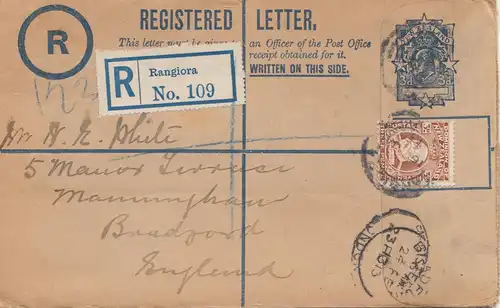 REGISTERED LETTER.
This letter must be given to an Officer of the Post Office
receipt obtained for it.
WRITTEN ON THIS SIDE.
R
R
Rangiora
No. 109
Mr N. E. White
5 Manor Terrace
Manningham
Bradford
England